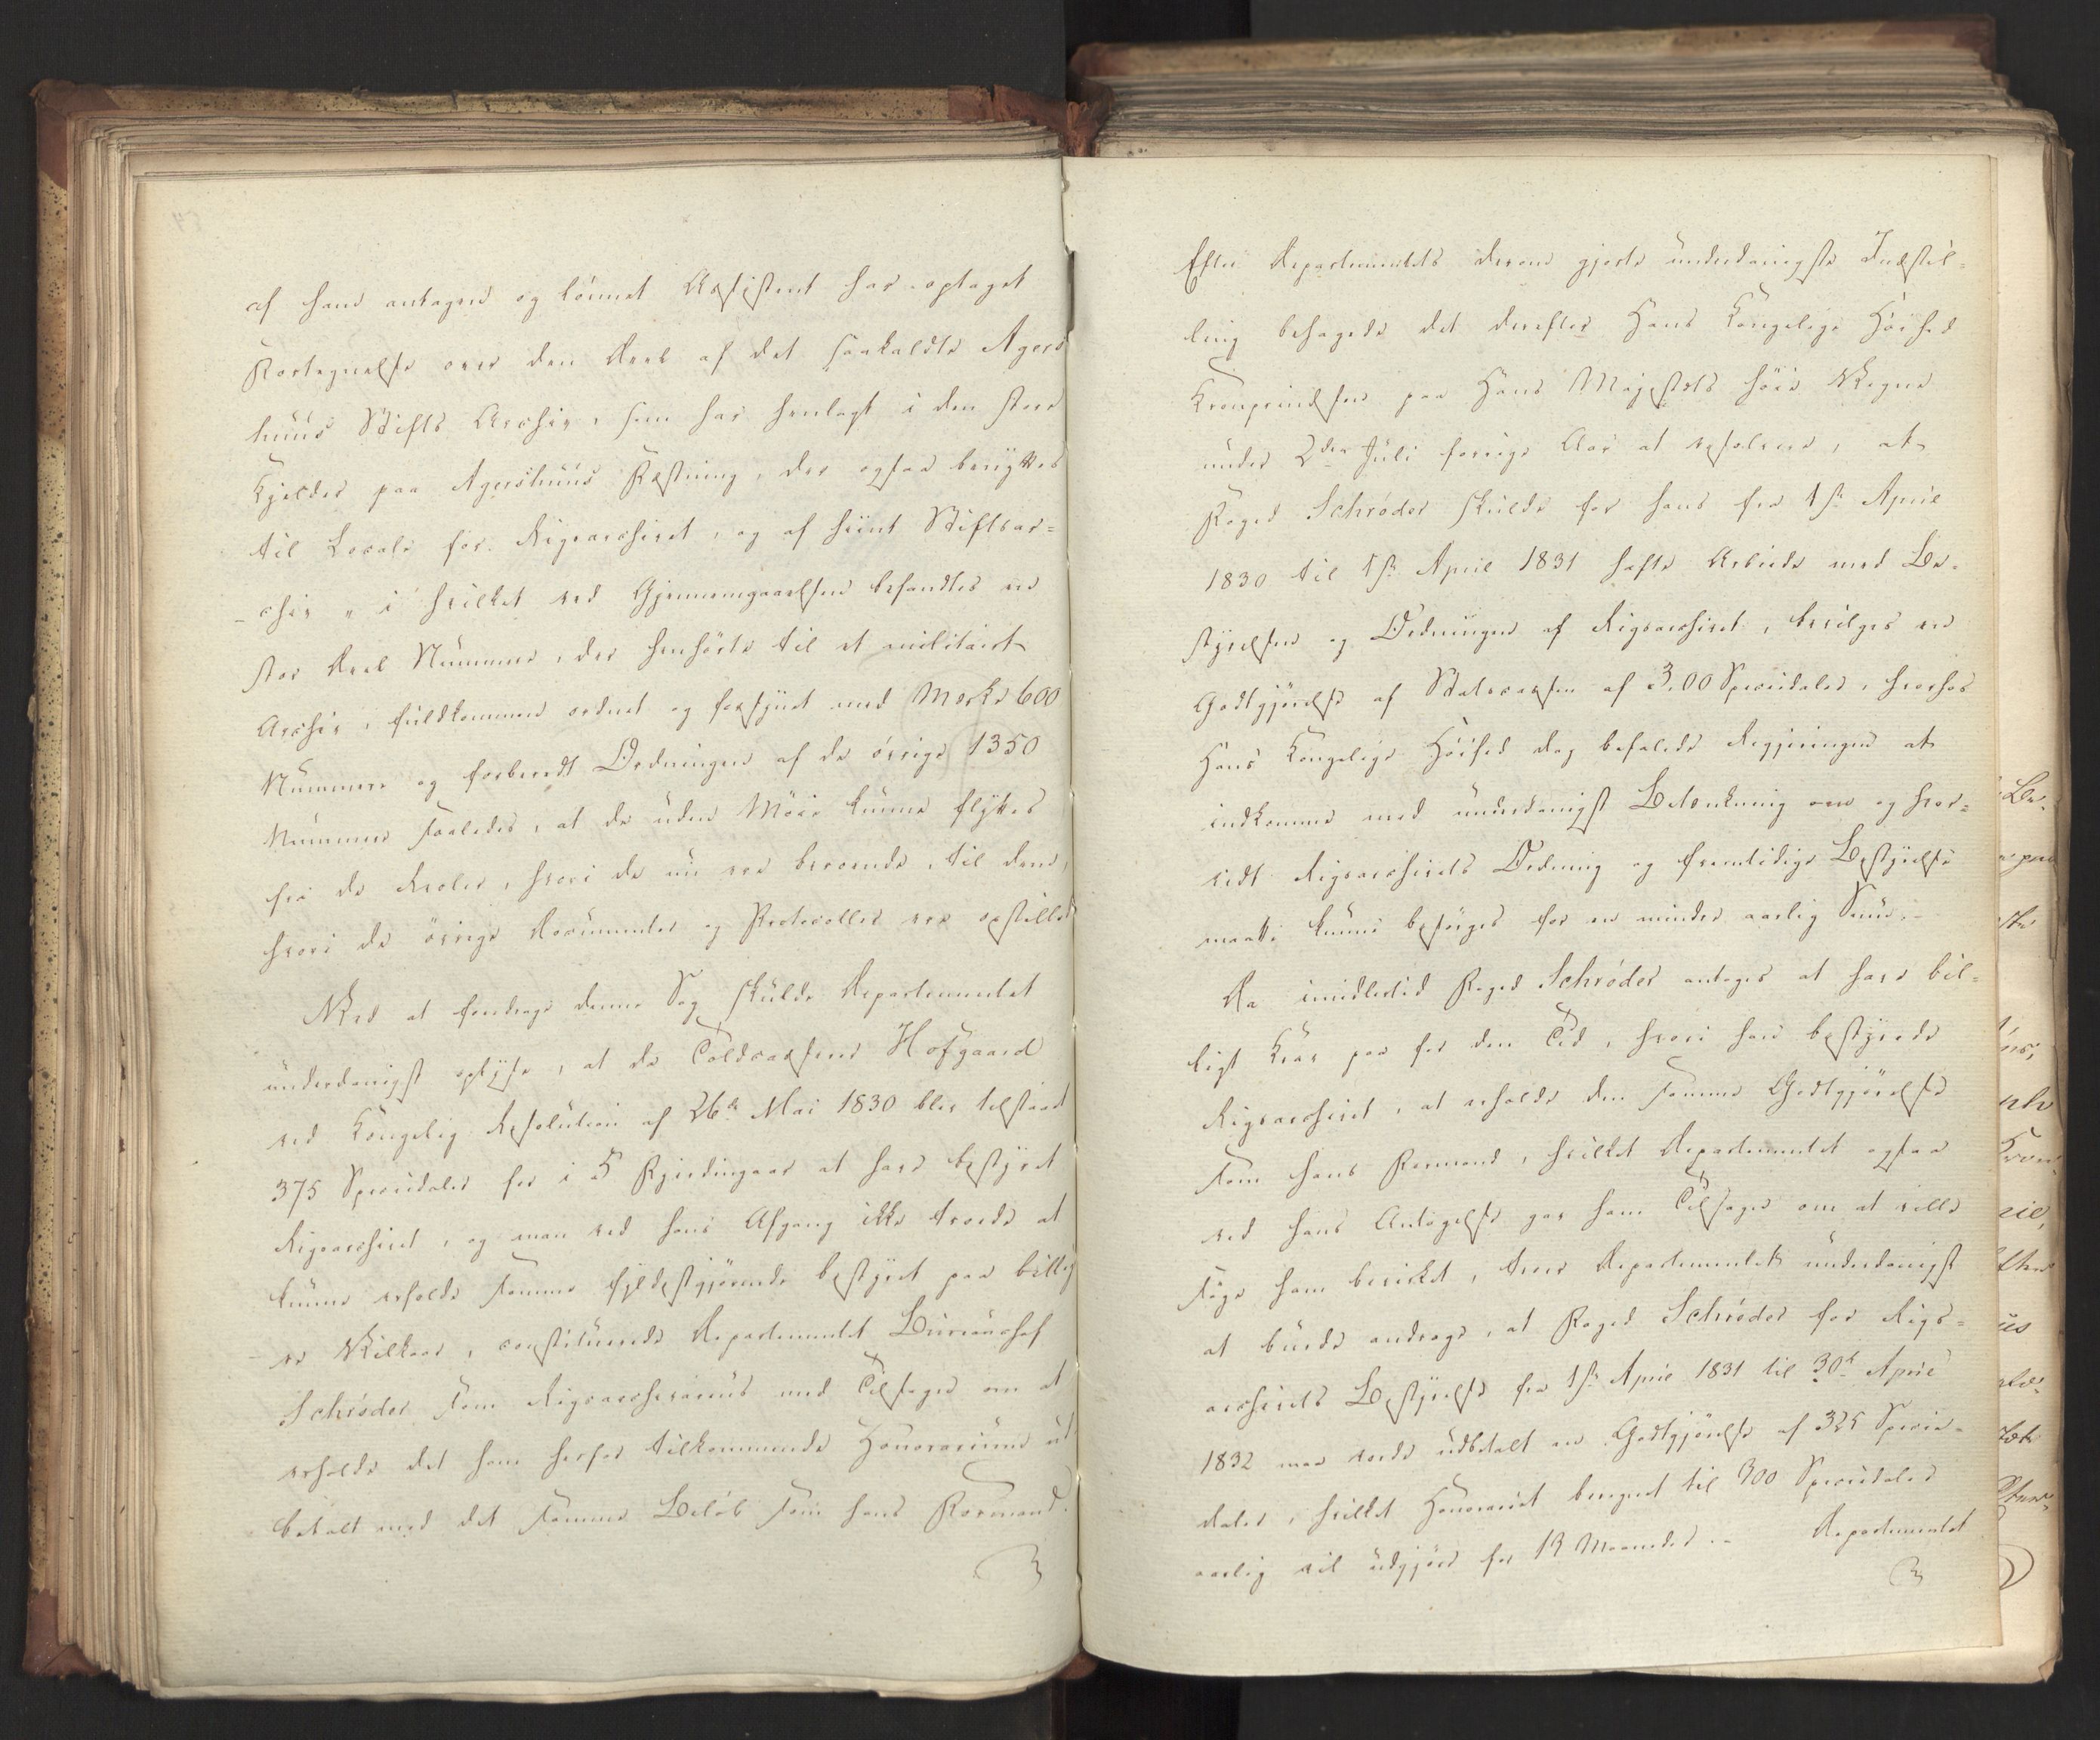 af ham antagen og lønnet Assistent har optaget
Fortegnelse over den Deel af det saakaldte Agers
huus Stifts Archiv, som har henlagt i den store
Kjelder paa Agershuus Fæstning, der ogsaa benyttes
til Locale for Rigsarchivet, og af hiint Stiftsar-
chiv " i hvilket ved Gjennemgaaelsen befandtes en
stor Deel Nummere, der henhörte til et militairt
Archiv, fuldkommen ordnet og forsynet med Mærke 600
Nummere og forberedt Ordningen af de övrige 1350
Nummere saaledes, at de uden Möie kunne flyttes
fra de Reoler, hvori de nu ere beroende, til dem,
hvori de övrige Documenter og Protocoller ere opstillet
Ved at foredrage denne Sag skulde Departementet
underdanigst oplyse, at da Toldcasserer Hofgaard
ved Kongelig Resolution af 26de Mai 1830 blev tilstaaet
375 Speciedaler for i 5 Fjerdingaar at have bestyret
Rigsarchivet, og man ved hans Afgang ikke troede at
kunne erholde samme fyldestgjörende bestyret paa billig
re Vilkaar, constituerede Departementet Bureauchef
Schröder som Rigsarchivarius med Tilsagn om at
erholde det ham herfor tilkommende Honorarium ud
betalt med det samme Belöb som hans Formand.
Efter Departementets derom gjorte underdanigste Indstil-
ling behagede det derefter Hans Kongelige Höihed
Kronprindsen paa Hans Majestæts höie Vegne
under 2den Juli forrige Aar at resolvere, at
Foged Schröder skulde for hans fra 1ste April
1830 til 1ste April 1831 hafte Arbeide med Be-
styrelsen og Ordningen af Rigsarchivet, bevilges en
Godtgjörelse af Statscassen af 300 Speciedaler, hvorhos
Hans Kongelige Höihed dog befalede Regjeringen at
indkomme med underdanigst Betænkning om og hvor-
vidt Rigsarchivets Ordning og fremtidige Bestyrelse
maatte kunne besörges for en mindre aarlig Sum.-
Da imidlertid Foged Schröder antages at have bil-
ligt Krav paa for den Tid, hvori han bestyrede
Rigsarchivet, at erholde den samme Godtgjörelse
som hans Formand, hvilket Departementet ogsaa
ved hans Antagelse gav ham Tilsagn om at ville
söge ham bevirket, troer Departementet underdanigst
at burde andrage, at Foged Schröder for Rigs-
archivets Bestyrelse fra 1ste April 1831 til 30te April
1832 maa vorde udbetalt en Godtgjörelse af 325 Specie-
daler, hvilket Honorariet beregnet til 300 Speciedaler
aarlig vil udgjöre for 13 Maaneder.- Departementet